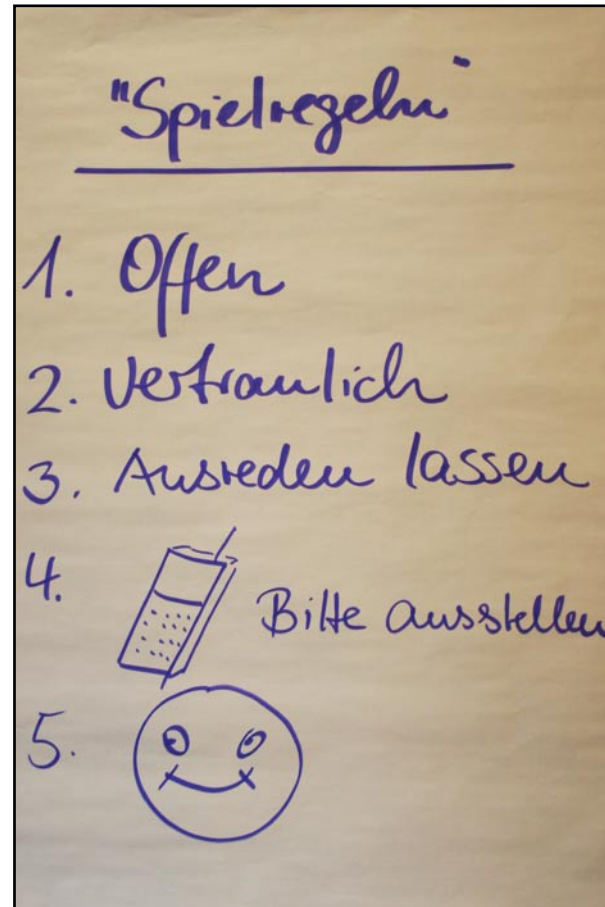 "Spielregeln"
1. Offen
2. Vertraulich
3. Ausreden lassen
4. Bitte ausstellen
5.